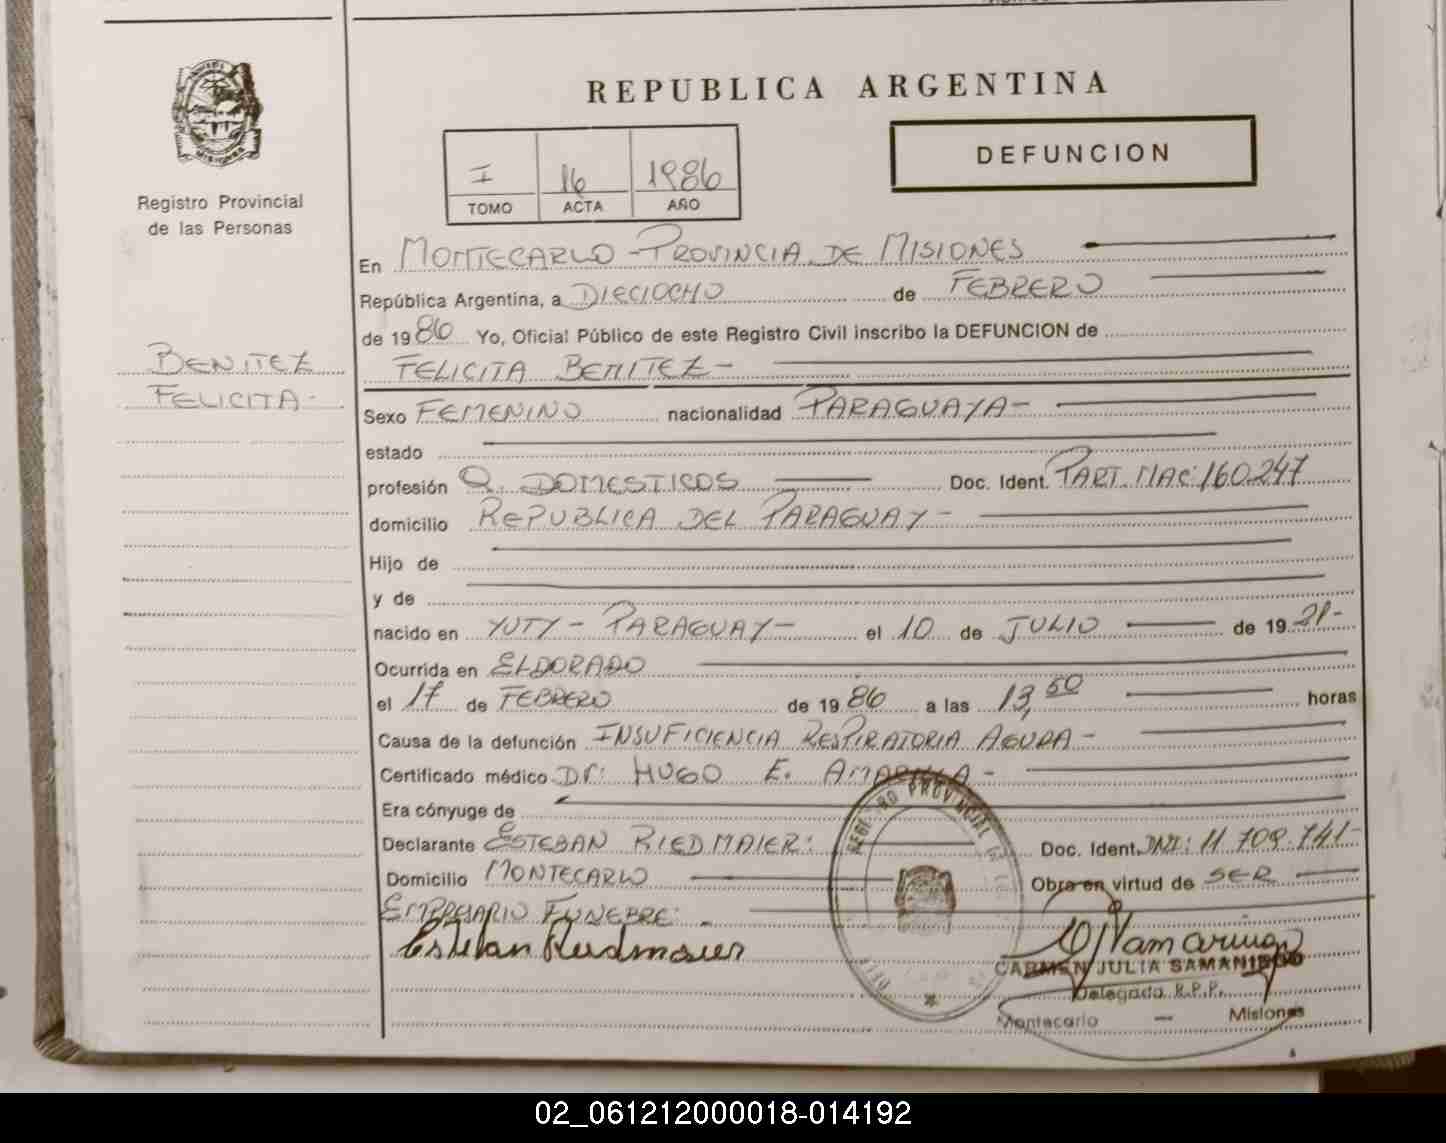 REPUBLICA ARGENTINA
DEFUNCION
I 16 1986
TOMO ACTA AÑO
MISIONES
Registro Provincial
de las Personas
BENITEZ
FELICITA-
En MONTECARLO - PROVINCIA DE MISIONES
República Argentina, a DIECIOCHO de FEBRERO
de 1986 Yo, Oficial Público de este Registro Civil inscribo la DEFUNCION de
FELICITA BENITEZ-
Sexo FEMENINO nacionalidad PARAGUAYA-
estado
profesión Q. DOMESTICOS Doc. Ident. PART. NAC: 160.247
domicilio REPUBLICA DEL PARAGUAY-
Hijo de
y de
nacido en YUTY - PARAGUAY- el 10 de JULIO de 1921-
Ocurrida en ELDORADO
el 17 de FEBRERO de 1986 a las 13,50 horas
Causa de la defunción INSUFICIENCIA RESPIRATORIA AGUDA-
Certificado médico Dr: HUGO E. AMARILLA-
Era cónyuge de
Declarante ESTEBAN RIEDMAIER: Doc. Ident. DNI: 11.709.741-
Domicilio MONTECARLO Obra en virtud de SER
EMPRESARIO FUNEBRE:-
Esteban Riedmaier
REGISTRO PROVINCIAL DE
CARMEN JULIA SAMANIEGO
Delegada R.P.P.
Montecarlo — Misiones
02_061212000018-014192